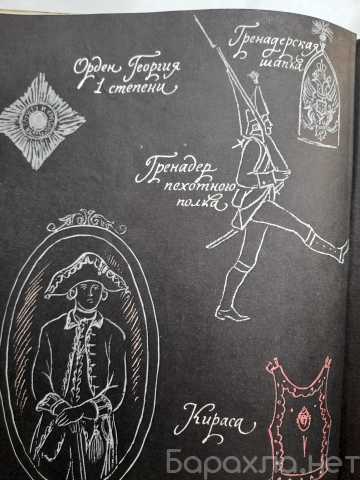 Орден Георгия
1 степени
Гренадерская
шапка
Гренадер
пехотного
полка
Кираса
Барахла.нет